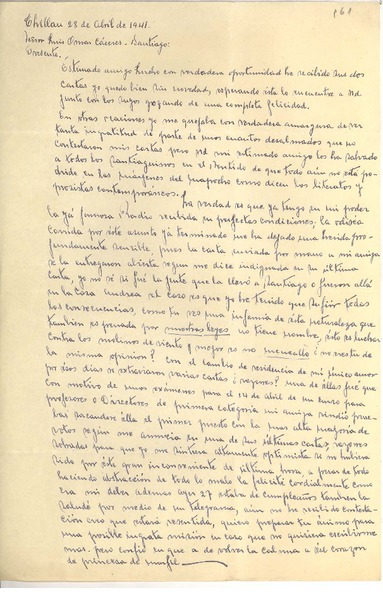 161
Chillán 23 de Abril de 1941.
Señor Luis Omar Cáceres. Santiago.
Presente.
Estimado amigo Lucho con verdadera oportunidad he recibido sus dos
cartas yo quedo bien sin novedad, esperando ésta lo encuentre a Ud
junto con los suyos gozando de una completa felicidad.
En otras ocasiones yo me quejaba con verdadera amargura de ver
tanta ingratitud de parte de unos cuantos desalmados que no
contestaron mis cartas pero Ud mi estimado amigo los ha salvado
a todos los Santiaguinos en el sentido de que todo aún no está po-
drido en las márgenes del Mapocho como dicen los literatos y
prosistas contemporáneos.
La verdad es que ya tengo en mi poder
la ya famosa radio recibida en perfectas condiciones, la odisea
corrida por éste asunto ya terminado me ha dejado una herida pro-
fundamente sensible pues la carta enviada por mano a mi amiga
se la entregaron abierta según me dice indignada en su última
carta, yo no sé si fué la gente que la llevó a Santiago o fueron allá
en la casa el caso es que yo he tenido que sufrir todas
las consecuencias, como tu ves una infamia de ésta naturaleza que
también es penada por nuestras leyes no tiene nombre, ésto es luchar
contra los molinos de viento y mejor es no meneallo ¿no eres tu de
la misma opinión? Con el cambio de residencia de mi único amor
por ésos días se extraviaron varias cartas
con motivo de unos exámenes para el 14 de Abril de un curso para
profesores o Directores de primera categoría mi amiga rindió prue-
bas sacándose ella el primer puesto con la mas alta mayoría de
votos según me anuncia en una de sus últimas cartas, razones
sobradas para que yo me sintiera altamente optimista si no hubiera
sido por éste gran inconveniente de última hora, a pesar de todo
haciendo abstracción de todo lo malo la felicité cordialmente como
era mi deber además ayer 27 estaba de cumpleaños también la
saludé por medio de un telegrama, aún no he recibido contesta-
ción creo que estará resentida, quiero preparar tu ánimo para
una posible ingrata misión en caso que no quisiera escribirme
mas. pero confío en que a de volver la calma a ése corazón
de princesa de